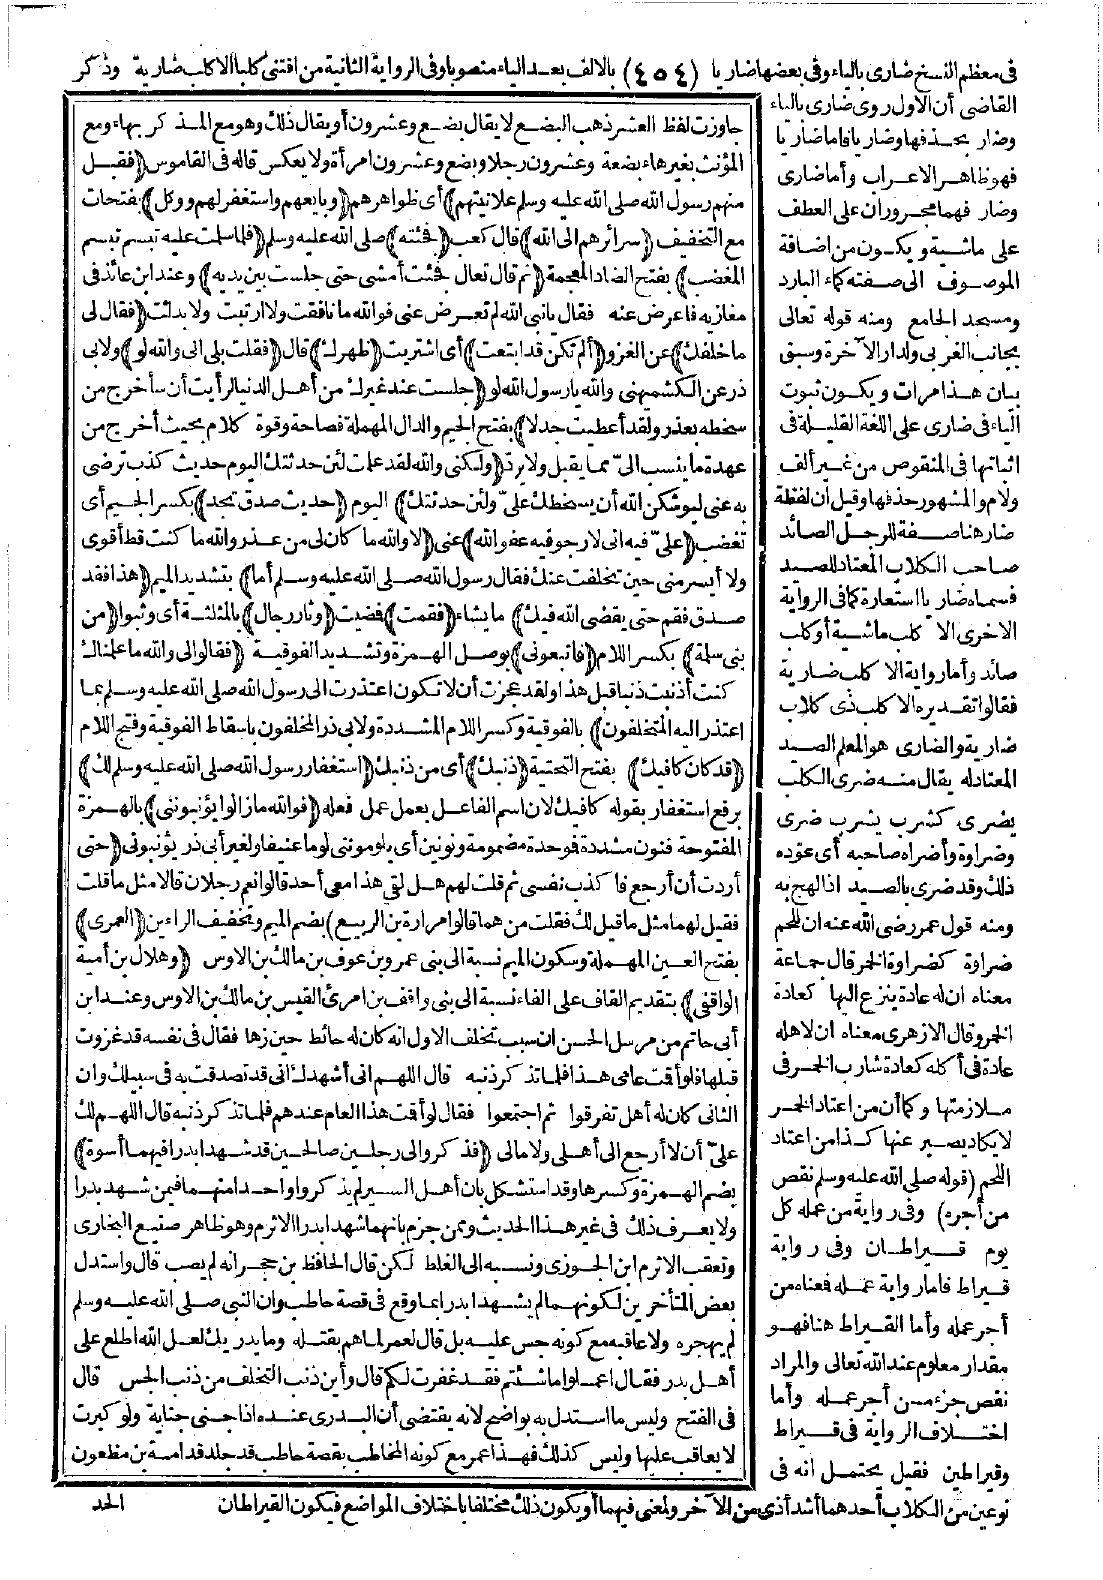 في معظم النسخ ضاري بالياء وفي بعضها ضاريا (٤٥٤) بالالف بعد الياء منصوبا وفي الرواية الثانية من اقتنى كلبا الا كلب ضارية وذكر
القاضي أن الاول روى ضاري بالياء
وضار بحذفها وضاريا فاما ضاريا
فهو ظاهر الاعراب وأما ضاري
وضار فهما مجروران على العطف
على ماشية ويكون من اضافة
الموصوف الى صفته كماء البارد
ومسجد الجامع ومنه قوله تعالى
بجانب الغربي ولدار الآخرة وسبق
بيان هذا مرات ويكون ثبوت
الياء في ضاري على اللغة القليلة في
اثباتها في المنقوص من غير ألف
ولام والمشهور حذفها وقيل ان لفظة
ضار هنا صفة للرجل الصائد
صاحب الكلاب المعتاد للصيد
فسماه ضاريا استعارة كما في الرواية
الاخرى الا كلب ماشية أو كلب
صائد وأما رواية الا كلب ضارية
فقالوا تقديره الا كلب ذي كلاب
ضارية والضاري هو المعلم الصيد
المعتاد له يقال منه ضرى الكلب
يضرى كشرب يشرب ضرى
وضراوة وأضراه صاحبه أى عوده
ذلك وقد ضرى بالصيد اذا لهج به
ومنه قول عمر رضى الله عنه ان للحم
ضراوة كضراوة الخمر قال جماعة
معناه ان له عادة ينزع اليها كعادة
الخمر وقال الازهرى معناه ان لاهله
عادة في أكله كعادة شارب الخمر في
ملازمتها وكما أن من اعتاد الخمر
لا يكاد يصبر عنها كذا من اعتاد
اللحم (قوله صلى الله عليه وسلم نقص
من أجره) وفي رواية من عمله كل
يوم قيراطان وفي رواية
قيراط فاما رواية عمله فمعناه من
أجر عمله وأما القيراط هنا فهو
مقدار معلوم عند الله تعالى والمراد
نقص جزء من أجر عمله وأما
اختلاف الرواية في قيراط
وقيراطين فقيل يحتمل انه في
نوعين من الكلاب أحدهما أشد أذى من الآخر ولمعنى فيهما أو يكون ذلك مختلفا باختلاف المواضع فيكون القيراطان
جاوزت لفظ العشر ذهب البضع لا يقال بضع وعشرون أو يقال ذلك وهو مع المذكر بهاء ومع
المؤنث بغيرهاء بضعة وعشرون رجلا وبضع وعشرون امرأة ولا يعكس قاله في القاموس ﴿فقبل
منهم رسول الله صلى الله عليه وسلم علانيتهم﴾ أى ظواهرهم ﴿وبايعهم واستغفر لهم ووكل﴾ بفتحات
مع التخفيف ﴿سرائرهم الى الله﴾ قال كعب ﴿فجئته﴾ صلى الله عليه وسلم ﴿فلما سلمت عليه تبسم تبسم
المغضب﴾ بفتح الضاد المعجمة ﴿ثم قال تعال فجئت أمشى حتى جلست بين يديه﴾ وعند ابن عائذ في
مغازيه فاعرض عنه فقال يانبى الله لم تعرض عنى فوالله ما نافقت ولا ارتبت ولا بدلت ﴿فقال لى
ما خلفك﴾ عن الغزو ﴿ألم تكن قد ابتعت﴾ أى اشتريت ﴿ظهرك﴾ قال ﴿فقلت بلى انى والله لو﴾ ولابى
ذر عن الكشميهنى والله يا رسول الله لو ﴿جلست عند غيرك من أهل الدنيا لرأيت أن سأخرج من
سخطه بعذر ولقد أعطيت جدلا﴾ بفتح الجيم والدال المهملة فصاحة وقوة كلام بحيث أخرج من
عهدة ما ينسب الىّ مما يقبل ولا يرد ﴿ولكنى والله لقد علمت لئن حدثتك اليوم حديث كذب ترضى
به عنى ليوشكن الله أن يسخطك علىّ ولئن حدثتك﴾ اليوم ﴿حديث صدق تجد﴾ بكسر الجيم أى
تغضب ﴿علىّ فيه انى لارجو فيه عفو الله﴾ عنى ﴿لا والله ما كان لى من عذر والله ما كنت قط أقوى
ولا أيسر منى حين تخلفت عنك فقال رسول الله صلى الله عليه وسلم أما﴾ بتشديد الميم ﴿هذا فقد
صدق فقم حتى يقضى الله فيك﴾ ما يشاء ﴿فقمت﴾ فمضيت ﴿وثار رجال﴾ بالمثلثة أى وثبوا ﴿من
بنى سلمة﴾ بكسر اللام ﴿فاتبعونى﴾ بوصل الهمزة وتشديد الفوقية ﴿فقالوا لى والله ما علمناك
كنت أذنبت ذنبا قبل هذا ولقد عجزت أن لا تكون اعتذرت الى رسول الله صلى الله عليه وسلم بما
اعتذر اليه المتخلفون﴾ بالفوقية وكسر اللام المشددة ولابى ذر المخلفون باسقاط الفوقية وفتح اللام
﴿قد كان كافيك﴾ بفتح التحتية ﴿ذنبك﴾ أى من ذنبك ﴿استغفار رسول الله صلى الله عليه وسلم لك﴾
برفع استغفار بقوله كافيك لان اسم الفاعل يعمل عمل فعله ﴿فوالله مازالوا يؤنبوننى﴾ بالهمزة
المفتوحة فنون مشددة فوحدة مضمومة ونونين أى يلوموننى لوما عنيفا ولغير أبى ذر يؤنبونى ﴿حتى
أردت أن أرجع فأكذب نفسى ثم قلت لهم هل لقى هذا معى أحد قالوا نعم رجلان قالا مثل ما قلت
فقيل لهما مثل ما قيل لك فقلت من هما قالوا مرارة بن الربيع﴾ بضم الميم وتخفيف الراءين ﴿العمرى﴾
بفتح العين المهملة وسكون الميم نسبة الى بنى عمرو بن عوف بن مالك بن الاوس ﴿وهلال بن أمية
الواقفى﴾ بتقديم القاف على الفاء نسبة الى بنى واقف بن امرئ القيس بن مالك بن الاوس وعند ابن
أبى حاتم من مرسل الحسن ان سبب تخلف الاول انه كان له حائط حين زها فقال في نفسه قد غزوت
قبلها فلو أقت عامى هذا فلما تذكر ذنبه قال اللهم انى أشهدك انى قد تصدقت به في سبيلك وان
الثانى كان له أهل تفرقوا ثم اجتمعوا فقال لو أقت هذا العام عندهم فلما تذكر ذنبه قال اللهم لك
علىّ أن لا أرجع الى أهلى ولا مالى ﴿فذكروا لى رجلين صالحين قد شهدا بدرا فيهما أسوة﴾
بضم الهمزة وكسرها وقد استشكل بان أهل السير لم يذكروا واحدا منهما فيمن شهد بدرا
ولا يعرف ذلك في غير هذا الحديث وممن جزم بانهما شهدا بدرا الاثرم وهو ظاهر صنيع البخارى
وتعقب الاثرم ابن الجوزى ونسبه الى الغلط لكن قال الحافظ بن حجر انه لم يصب قال واستدل
بعض المتأخرين لكونهما لم يشهدا بدرا بما وقع في قصة حاطب وان النبى صلى الله عليه وسلم
لم يهجره ولا عاقبه مع كونه جس عليه بل قال لعمر لما هم بقتله وما يدريك لعل الله اطلع على
أهل بدر فقال اعملوا ما شئتم فقد غفرت لكم قال وأين ذنب التخلف من ذنب الجس قال
في الفتح وليس ما استدل به بواضح لانه يقتضى أن البدرى عنده اذا جنى جناية ولو كبرت
لا يعاقب عليها وليس كذلك فهذا عمر مع كونه المخاطب بقصة حاطب قد جلد قدامة بن مظعون
الحد